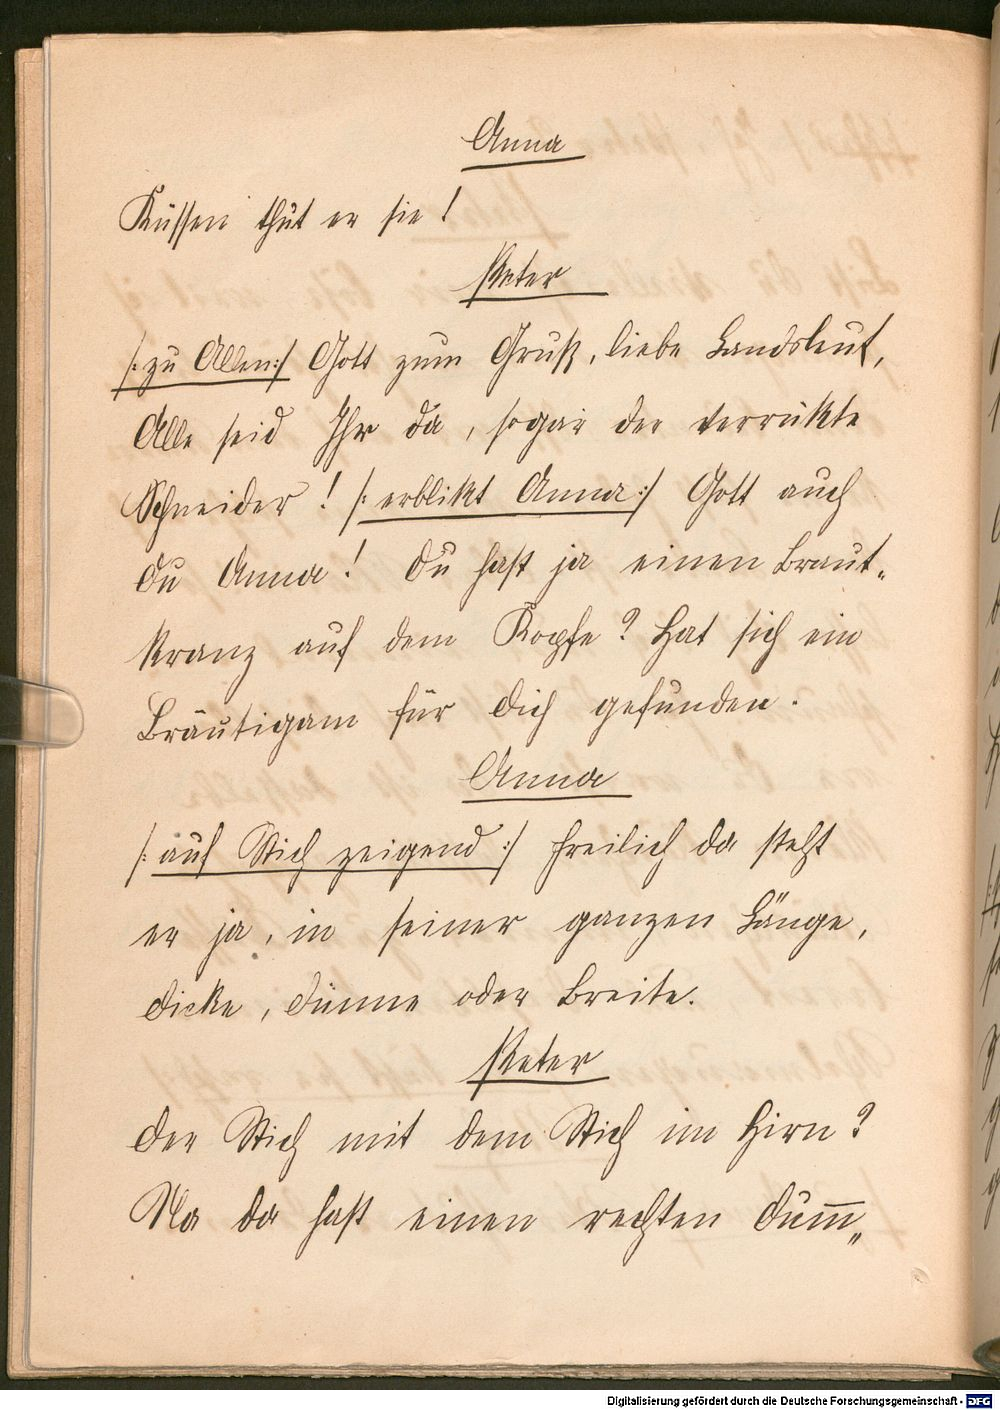 Anna
Küssen thut er sie!
Peter
/: zu Allen :/ Gott zum Gruß, liebe Landsleut,
Alle seid Ihr da, sogar der verrükte
Schneider! /: erblikt Anna :/ Gott auch
du Anna! Du hast ja einen Braut-
kranz auf dem Kopfe? Hat sich ein
Bräutigam für dich gefunden.
Anna
/: auf Stich zeigend :/ Freilich da steht
er ja, in seiner ganzen Länge,
Dicke, Dünne oder Breite.
Peter
Der Stich mit dem Stich im Hirn?
Na da hast einen rechten Dum̅„
Digitalisierung gefördert durch die Deutsche Forschungsgemeinschaft - DFG